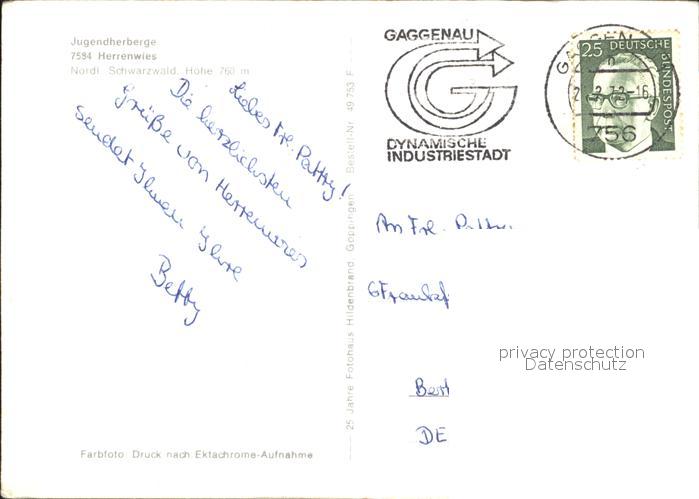 Jugendherberge
7584 Herrenwies
Nördl. Schwarzwald, Höhe 760 m
Liebes Frl. Pattry!
Die herzlichsten
Grüße von Herrenwies
sendet Ihnen Ihre
Betty
Farbfoto: Druck nach Ektachrome-Aufnahme
25 Jahre Fotohaus Hildenbrand, Göppingen Bestell-Nr. 49 753 F
GAGGENAU
DYNAMISCHE
INDUSTRIESTADT
25 DEUTSCHE
BUNDESPOST
756
An Frl.
DE
privacy protection
Datenschutz